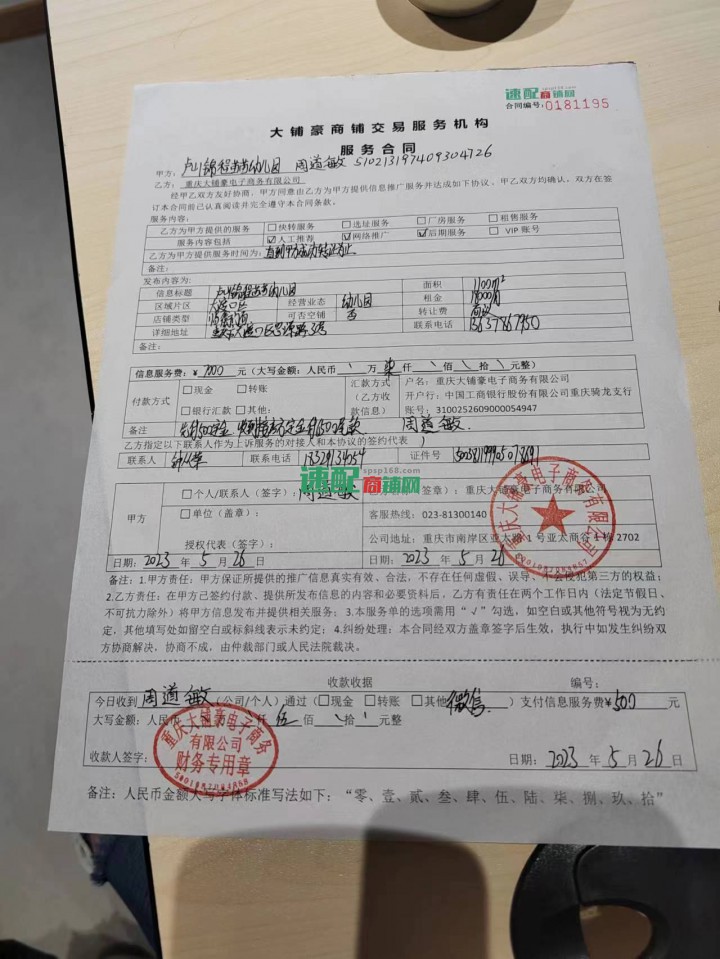 速配商铺网
合同编号:0181195
大铺豪商铺交易服务机构
服务合同
甲方: 幼儿园 周道敏 510213197409304726
乙方: 重庆大铺豪电子商务有限公司
经甲乙双方友好协商,甲方同意由乙方为甲方提供信息推广服务并达成如下协议、甲乙双方均确认,双方在签
订本合同前已认真阅读并完全遵守本合同条款。
服务内容:
乙方为甲方提供的服务 □快转服务 □选址服务 □厂房服务 □租售服务
服务内容包括 ☑人工推荐 ☑网络推广 ☑后期服务 □ VIP 账号
乙方为甲方提供服务时间为: 直到甲方成功转让为止
备注:
发布内容为:
信息标题 幼儿园 面积 1100m²
区域片区 大渡口区 经营业态 幼儿园 租金
店铺类型 可否空铺 否 转让费 面议
详细地址 联系电话 13637867950
备注:
信息服务费:¥7000 元(大写金额:人民币 万 柒 仟 佰 拾 元整)
付款方式 □现金 □转账 □银行汇款 □其他:
汇款方式(乙方收款信息)
户名:重庆大铺豪电子商务有限公司
开户行:中国工商银行股份有限公司重庆骑龙支行
账号:3100252609000054947
备注 周道敏
乙方指定以下联系人作为上诉服务的对接人和本协议的签约代表
联系人 联系电话 18329134054 证件号
速配商铺网
spsp168.com
甲方 □个人/联系人(签字): 周道敏 (签章):重庆大铺豪电子商务有限公司
□单位(盖章): 客服热线:023-81300140
授权代表(签字): 公司地址:重庆市南岸区亚太路 1 号亚太商谷 1 栋 2702
日期:2023 年 5 月 26 日 日期:2023 年 5 月 26 日
重庆大铺豪电子商务有限公司
备注:1.甲方责任:甲方保证所提供的推广信息真实有效、合法,不存在任何虚假、误导、不会侵犯第三方的权益;
2.乙方责任:在甲方已签约付款、提供所发布信息的内容和必要资料后,乙方有责任在两个工作日内(法定节假日、
不可抗力除外)将甲方信息发布并提供相关服务;3.本服务单的选项需用“√”勾选,如空白或其他符号视为无约
定,其他填写处如留空白或标斜线表示未约定;4.纠纷处理:本合同经双方盖章签字后生效,执行中如发生纠纷双
方协商解决,协商不成,由仲裁部门或人民法院裁决。
收款收据 编号:
今日收到 周道敏 (公司/个人)通过(□现金 □转账 □其他 微信 )支付信息服务费¥500 元
大写金额:人民币 仟 伍 佰 拾 元整
收款人签字: 日期:2023 年 5 月 26 日
重庆大铺豪电子商务
有限公司
财务专用章
备注:人民币金额大写字体标准写法如下:“零、壹、贰、叁、肆、伍、陆、柒、捌、玖、拾”